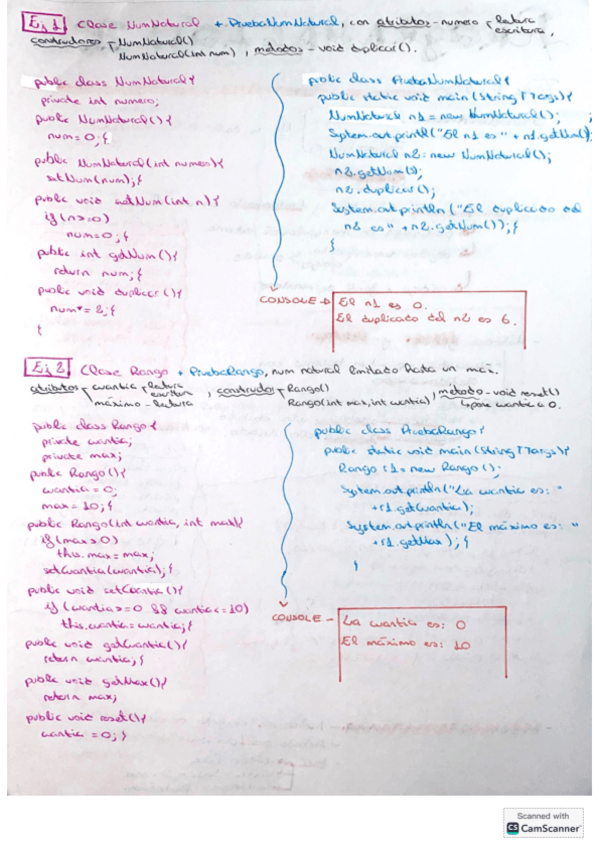 Ej 1 Clase NumNatural + PruebaNumNatural, con atributos - numero lectura escritura,
constructores NumNatural() NumNatural(int num), métodos - void duplicar().
public class NumNatural {
private int numero;
public NumNatural() {
num = 0; }
public NumNatural(int numero) {
setNum(num); }
public void setNum(int n) {
if (n>=0)
num=0; }
public int getNum() {
return num; }
public void duplicar() {
num*= 2; }
}
public class PruebaNumNatural {
public static void main (String [] args) {
NumNatural n1 = new NumNatural();
System.out.println("El n1 es " + n1.getNum();
NumNatural n2 = new NumNatural();
n2.getNum(3);
n2.duplicar();
System.out.println ("El duplicado del
n2 es" + n2.getNum()); }
}
CONSOLE → El n1 es 0.
El duplicado del n2 es 6.
Ej 2 Clase Rango + PruebaRango, num natural limitado hasta un máx.
atributos cuantia lectura escritura máximo - lectura, constructor Rango() Rango(int max, int cuantia), método - void reset()
↳ pone cuantia a 0.
public class Rango {
private cuantia;
private max;
public Rango() {
cuantia = 0;
max = 10; }
public Rango(int cuantia, int max) {
if (max>0)
this.max = max;
setCuantia(cuantia); }
public void setCuantia() {
if (cuantia >=0 && cuantia <= 10)
this.cuantia = cuantia; }
public void getCuantia() {
return cuantia; }
public void getMax() {
return max;
public void reset() {
cuantia = 0; }
public class PruebaRango {
public static void main (String [] args) {
Rango r1 = new Rango ();
System.out.println("La cuantia es: "
+r1.getCuantia);
System.out.println("El máximo es: "
+r1.getMax); }
}
CONSOLE - La cuantia es: 0
El máximo es: 10
Scanned with
CS CamScanner